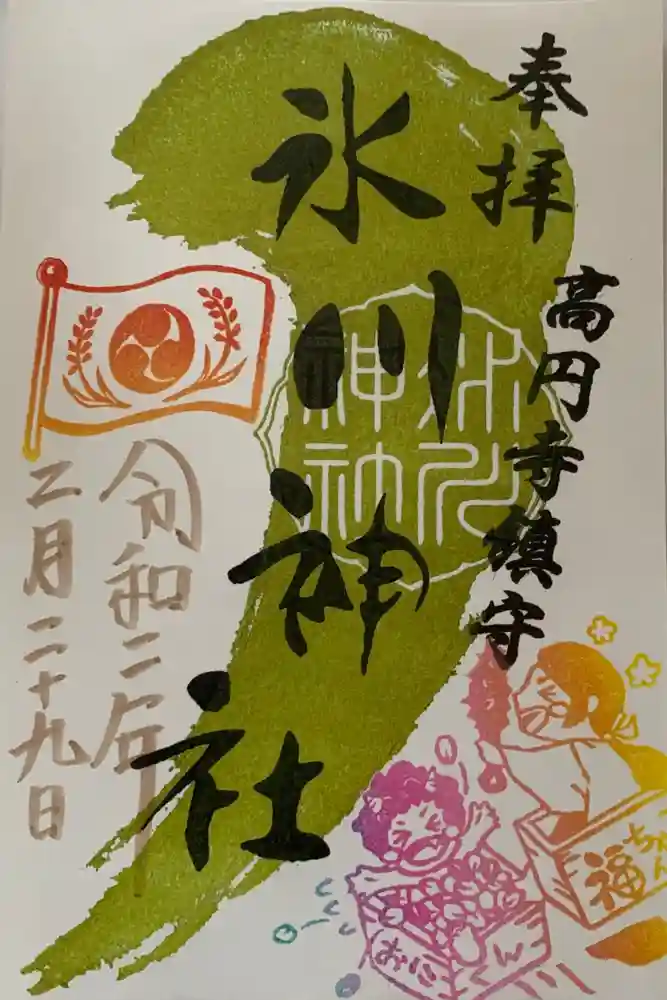 奉拝
高円寺鎮守
氷川神社
氷川
神社
令和二年
二月二十九日
福ちゃん
おにくん